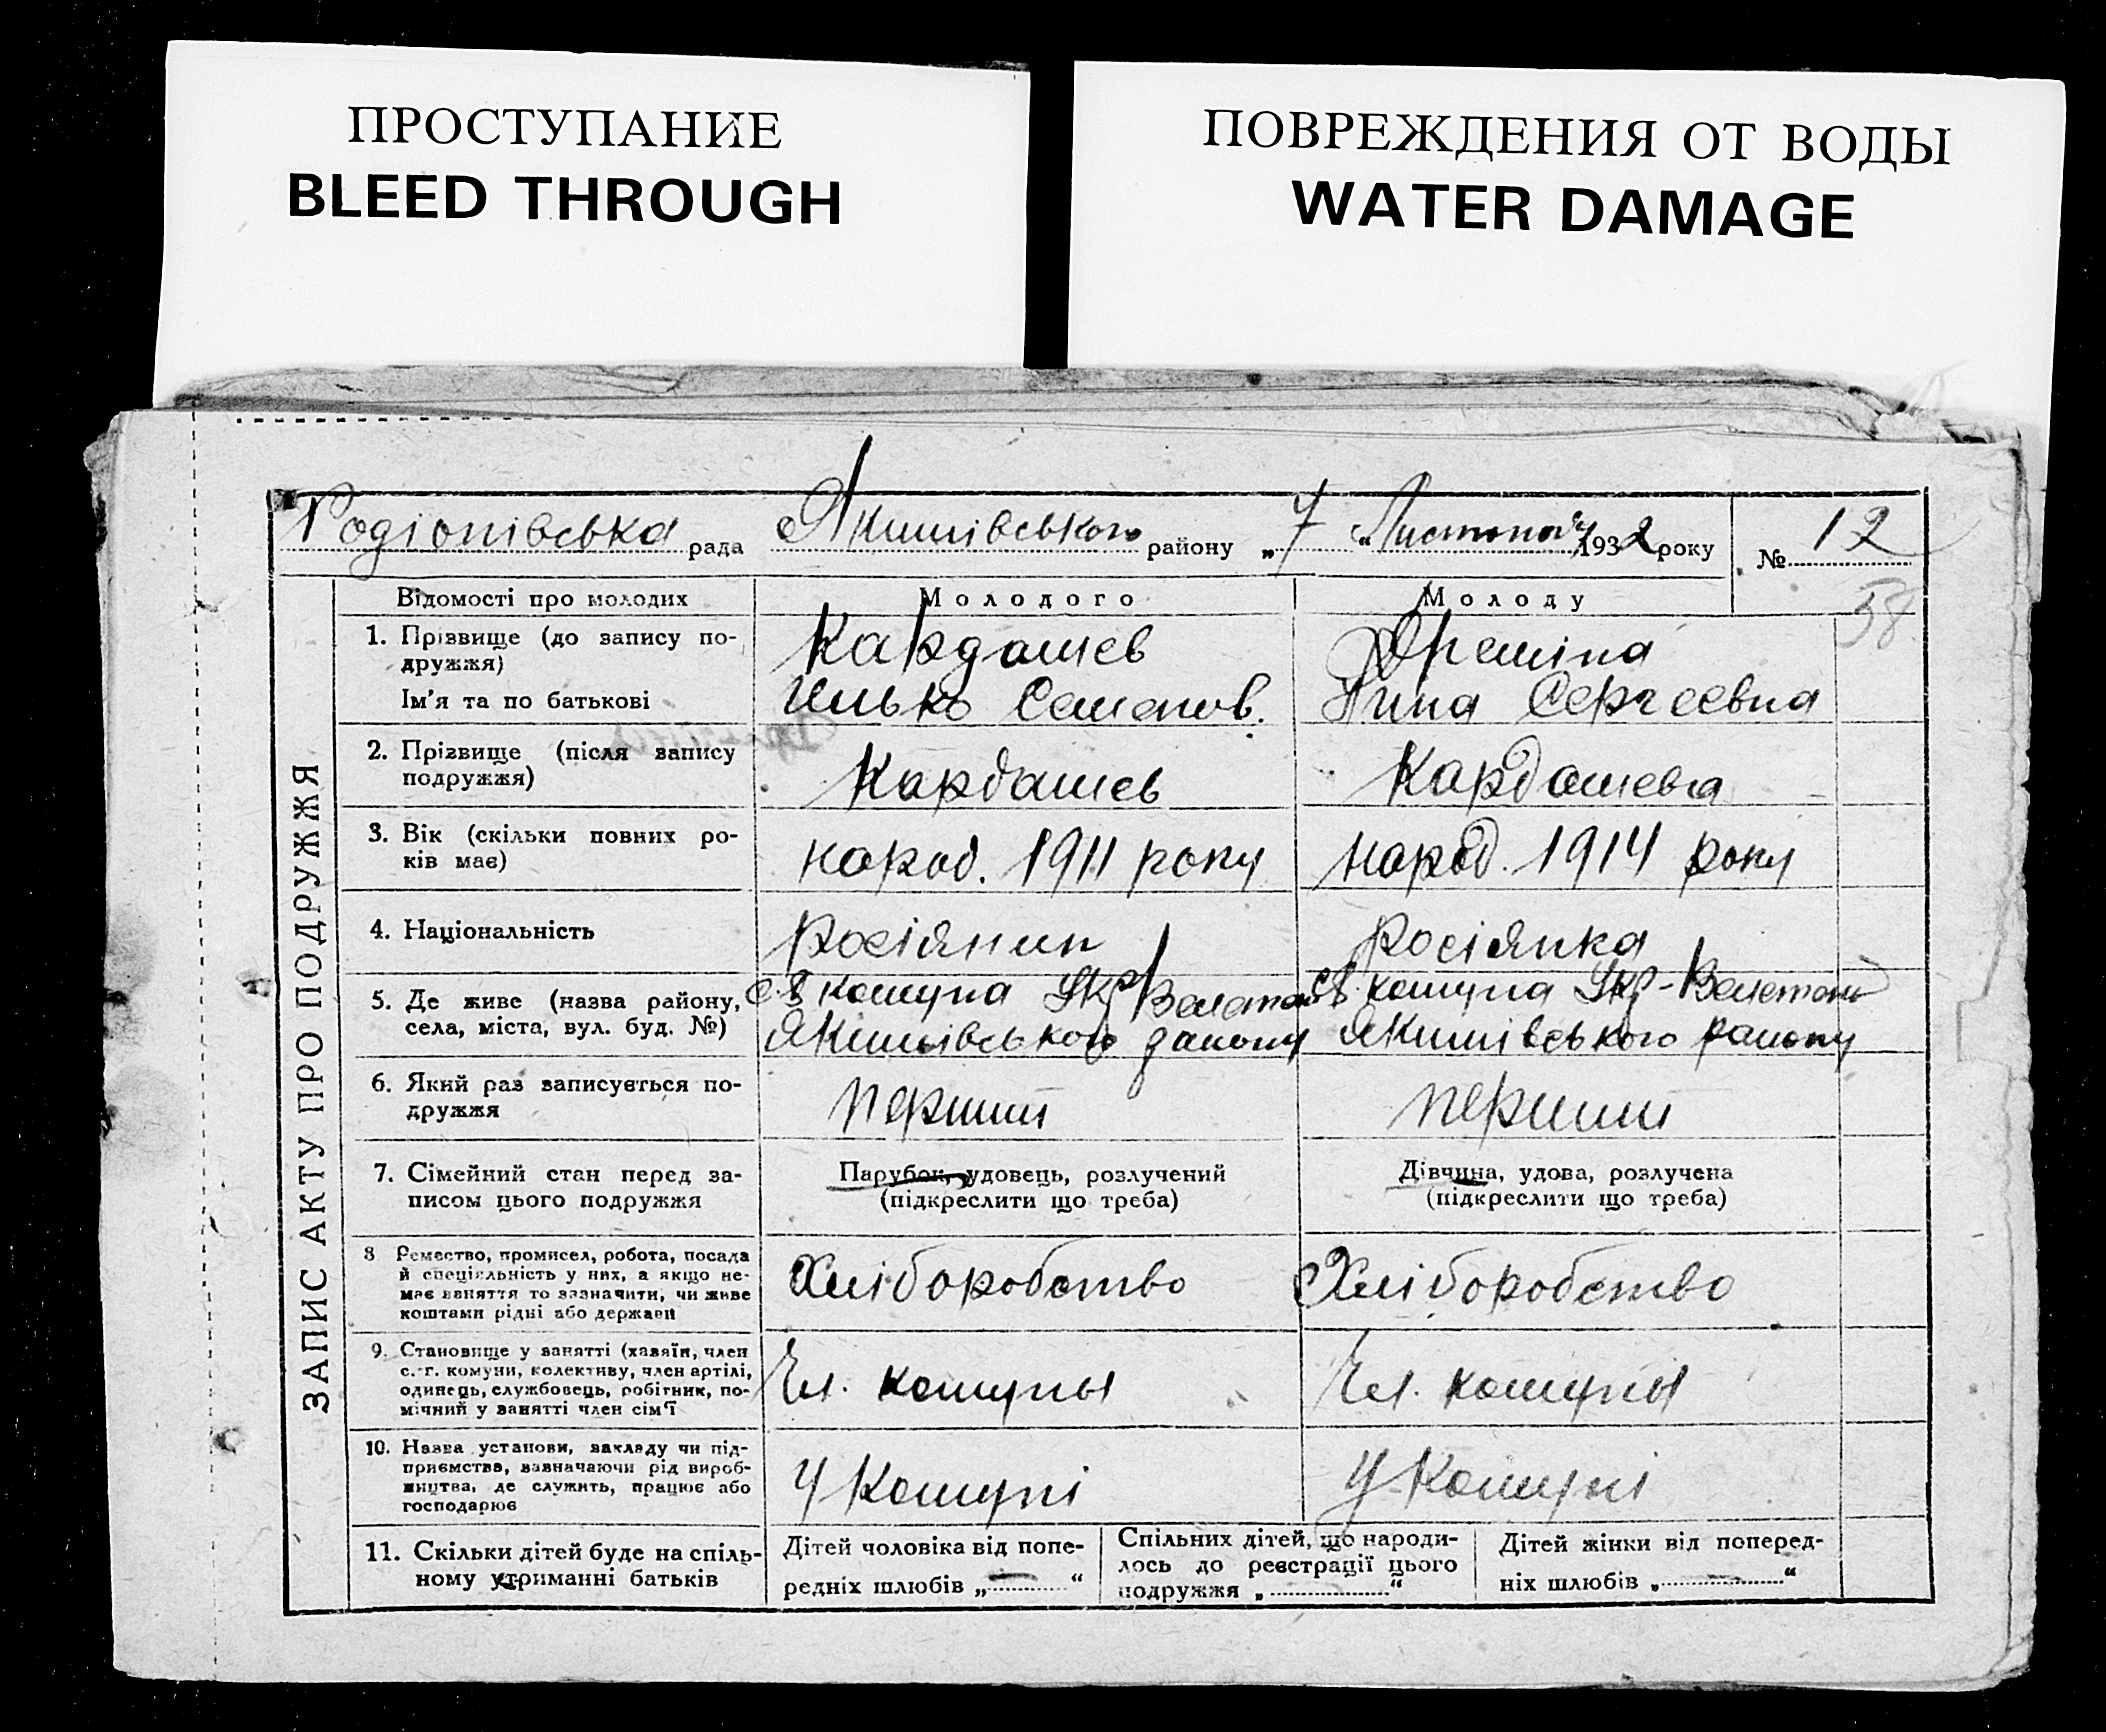 ПРОСТУПАНИЕ
BLEED THROUGH
ПОВРЕЖДЕНИЯ ОТ ВОДЫ
WATER DAMAGE
Родіонівська рада Якимівського району „7“ Листопад 1932 року № 12
58
ЗАПИС АКТУ ПРО ПОДРУЖЖЯ
Відомості про молодих Молодого Молоду
1. Прізвище (до запису по-
дружжя)
Кардашев
Ім'я та по батькові
Илько Семенов.
Сергеевна
2. Прізвище (після запису
подружжя)
Кардашев
Кардашева
3. Вік (скільки повних ро-
ків має)
народ. 1911 року
народ. 1914 року
4. Національність
росіянин
росіянка
5. Де живе (назва району,
села, міста, вул. буд. №)
комуна Укр
Якимівського району
комуна Укр-
Якимівського району
6. Який раз записується по-
дружжя
перший
перший
7. Сімейний стан перед за-
писом цього подружжя
Парубок, удовець, розлучений
(підкреслити що треба)
Дівчина, удова, розлучена
(підкреслити що треба)
8 Ремество, промисел, робота, посада
й спеціяльність у них, а якщо не-
має заняття то зазначити, чи живе
коштами рідні або держави
Хліборобство
Хліборобство
9. Становище у занятті (хазяїн, член
с.-г. комуни, колективу, член артілі,
одинець, службовець, робітник, по-
мічний у занятті член сім'ї
Чл. комуны
Чл. комуны
10. Назва установи, закладу чи під-
приємства, зазначаючи рід вироб-
ництва, де служить, працює або
господарює
У Комуні
У Комуні
11. Скільки дітей буде на спіль-
ному утриманні батьків
Дітей чоловіка від попе-
редніх шлюбів „—“
Спільних дітей, що народи-
лось до реєстрації цього
подружжя „ “
Дітей жінки від поперед-
ніх шлюбів „—“